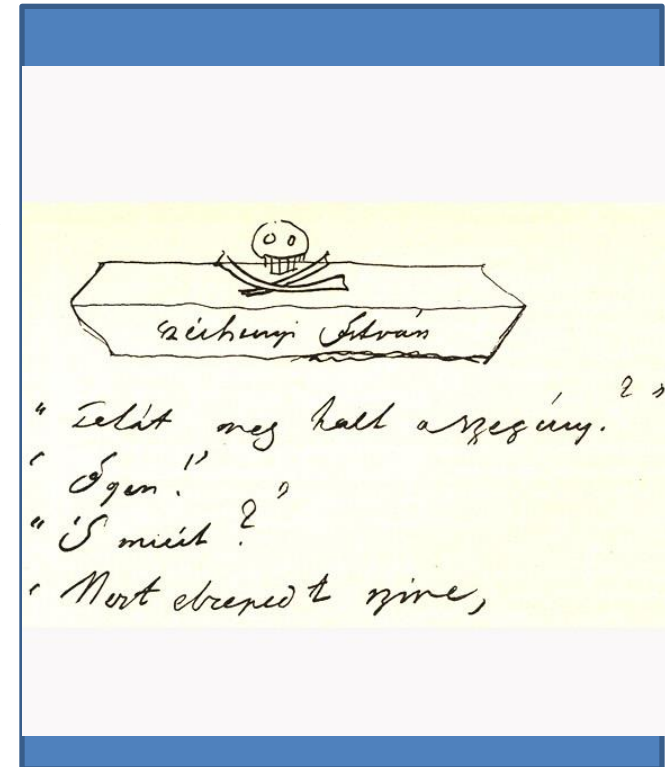 Széchenyi István
"Tehát meg halt a szegény?"
"Igen!"
"S miért?"
"Mert elreped t szive,